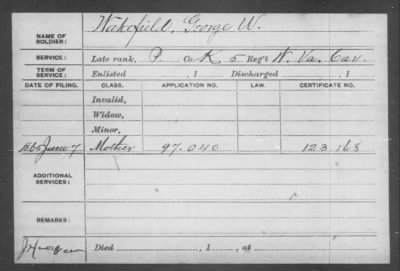 NAME OF SOLDIER: Wakefield, George W.
SERVICE: Late rank, P. Co. K, 5 Reg't W. Va. Cav.
TERM OF SERVICE: Enlisted , 1 Discharged , 1
DATE OF FILING. CLASS. APPLICATION NO. CERTIFICATE NO.
Invalid,
Widow,
Minor,
1865 June 7 Mother 97.040 123.168
ADDITIONAL SERVICES:
REMARKS:
Died , 1 , at